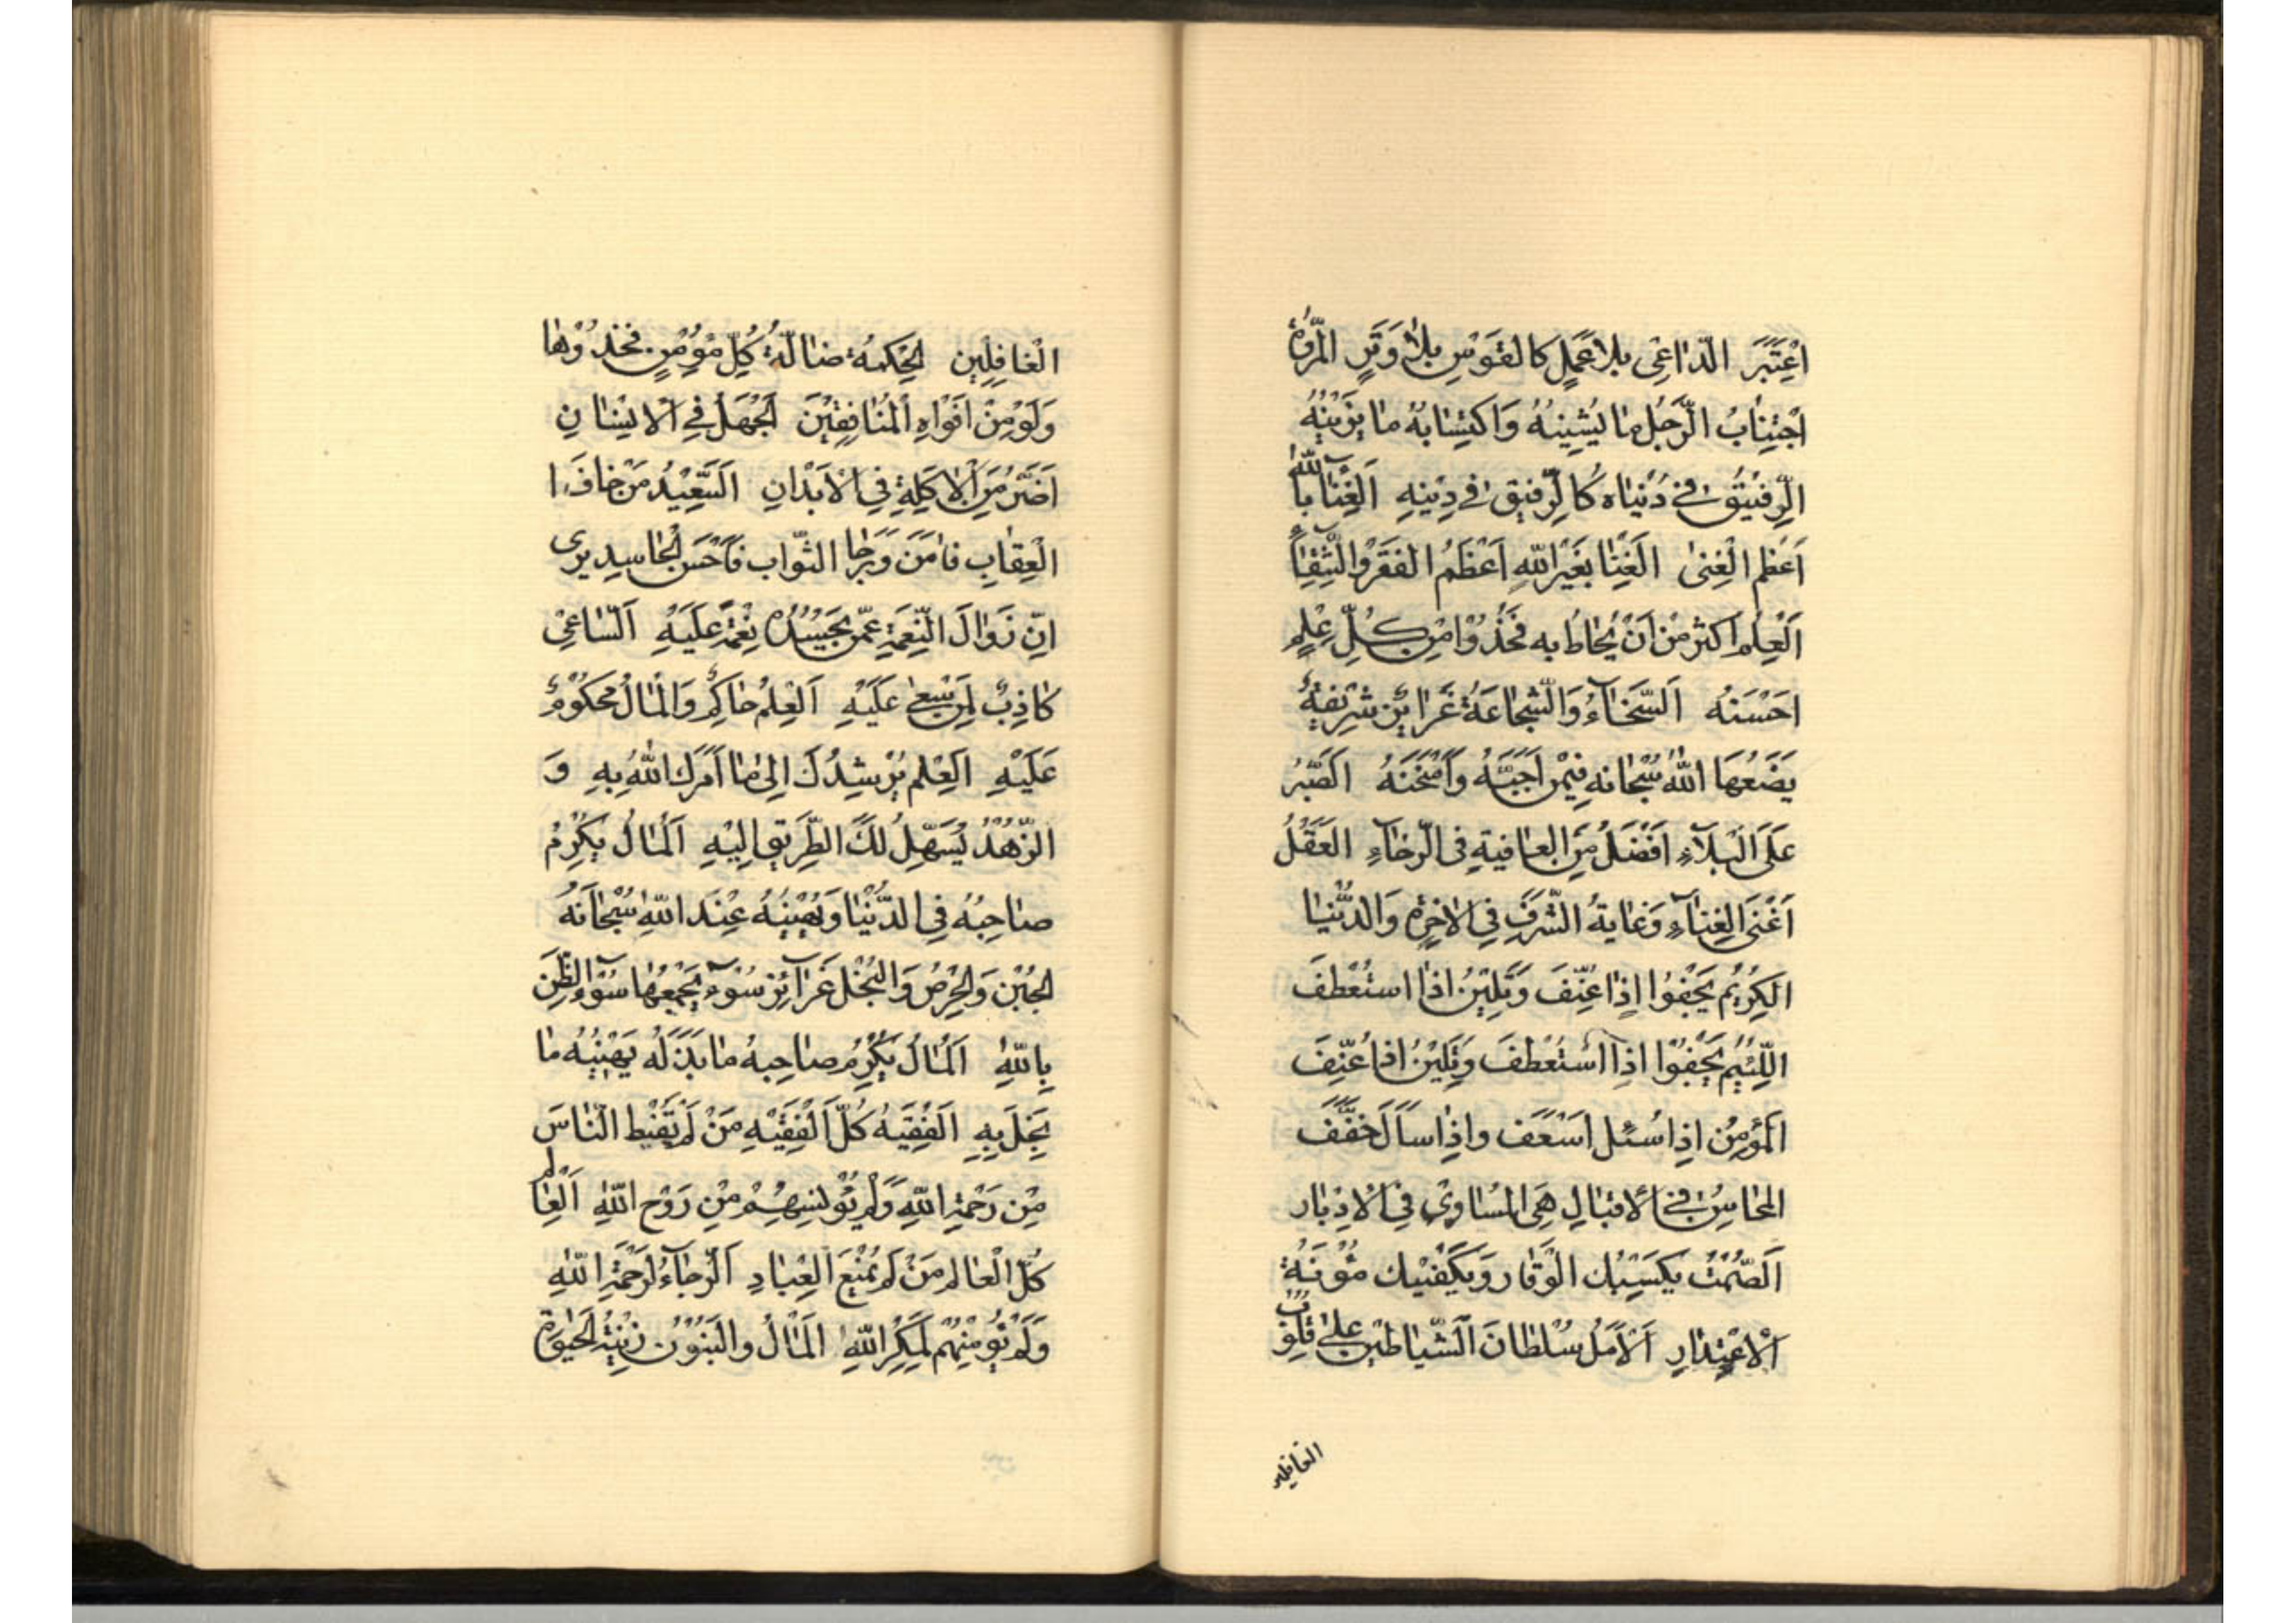 اعْتَبَرَ الدّاعِی بلا عَمَلٍ کالقَوْسِ بلا وَتَرٍ المُرُوّةُ
اجْتِنابُ الرَّجُلِ ما یُشینُهُ وَاکْتِسابُهُ ما یَزینُهُ
الرَّفیقُ فی دُنیاه کالرّفیقِ فی دِینِهِ الغِنا بِاللّهِ
اَعْظَم الْغِنیٰ الغِنا بِغَیْرِ اللّهِ اَعْظَمُ الفَقْرِ وَالشِّقاءِ
اَلْعِلْمُ اَکثَرُ مِنْ اَنْ یُحٰاطُ بِه فَخُذُوْا مِنْ کُلِّ عِلْمٍ
احْسَنَهُ اَلسَّخٰآءُ وَالشَّجاعَةُ غَرایِزُ شَرِیفَةٌ
یَضَعُهَا اللّهُ سُبْحانَهُ فِیْمَنْ اَحَبَّهُ وَامْتَحَنَهُ الصَّبْرُ
عَلَی الْبَلآءِ اَفْضَلُ مِنَ العافِیةِ فِی الرَّخآءِ العَقْلُ
اَغْنَی الْغِنآءِ وَغایَةُ الشَّرَفِ فِی الاٰخِرَةِ وَالدُّنیا
الکَرِیْمُ یَجْفُوْا اِذا عُنِّفَ وَیَلِیْنُ اِذا اسْتُعْطِفَ
اللَّئِیْمُ یَجْفُوْا اِذا اسْتُعْطِفَ وَیَلِیْنُ اذا عُنِّفَ
المُؤْمِنُ اِذا سُئِلَ اَسْعَفَ واِذا سَاَلَ خَفَّفَ
المَحاسِنُ فِی الاِقبالِ هِیَ المَساوِیْ فِی الاِدْبار
اَلصَّمْتُ یَکْسِبُكَ الْوَقار وَیَکْفِیْكَ مَؤُنَةَ
الْاِعْتِذارِ اَلْاَمَلُ سُلْطانُ الشَّیاطِیْنِ عَلیٰ قُلُوْبِ
الغافلین
الْغافِلِین الحِکمَةُ ضالَّةُ کُلِّ مُؤْمِنٍ فَخُذُوْها
وَلَوْ مِنْ اَفْواهِ الْمُنافِقِیْنَ اَلجَهْلُ فِی الْاِنْسانِ
اَضَرُّ مِنَ الْاٰکِلَةِ فِی الْاَبْدانِ اَلسَّعِیْدُ مَنْ خافَ ا
الْعِقٰابِ فاٰمَنَ وَرَجا الثَّواب فَاَحْسَنَ الحاسِد یری
اِنَّ زَوالَ النِّعْمَةِ عَمَّنْ یَحْسُدُهُ نِعْمَةٌ عَلَیْهِ اَلسّاعِیْ
کاذِبٌ لِمَنْ سَعیٰ عَلَیْهِ اَلْعِلْمُ حاکِمٌ وَالْمالُ مَحْکُوْمٌ
عَلَیْهِ اَلْعِلْم یُرْشِدُكَ اِلیٰ ما اَمَرَكَ اللّهُ بِهِ وَ
الزُّهْدُ یُسَهِّلُ لَكَ الطَّرِیْقَ اِلَیْهِ اَلْمالُ یُکْرِمُ
صاحِبُهُ فِی الدُّنْیا وَیُهِیْنُهُ عِنْدَ اللّهِ سُبْحانَهُ
الجُبْنُ وَالحِرْصُ وَالبُخْلُ غَرآئِزُ سُوْءٍ یَجْمَعُها سُوْٓءُ الظَّنِّ
بِاللّهِ اَلْمالُ یُکْرِمُ صاحِبهُ ما بَذَلَه یُهِیْنُهُ ما
بَخِلَ بِهِ الفَقِیْهُ کُلُّ الْفَقِیْهِ مَنْ لَمْ یُقْنِطِ النّاسَ
مِنْ رَحْمَةِ اللّهِ وَلَمْ یُؤْیِسْهُمْ مِنْ رَوْحِ اللّهِ اَلْعالِمُ
کُلُّ الْعالِمِ مَنْ لَمْ یَمْنَعِ الْعِبادِ اَلرَّجآءُ لِرَحْمَةِ اللّهِ
وَلَمْ یُؤْمِنْهُمْ لِمَکْرِ اللّهِ المَالُ والبَنُوْنَ زِیْنَةُ الْحَیٰوة